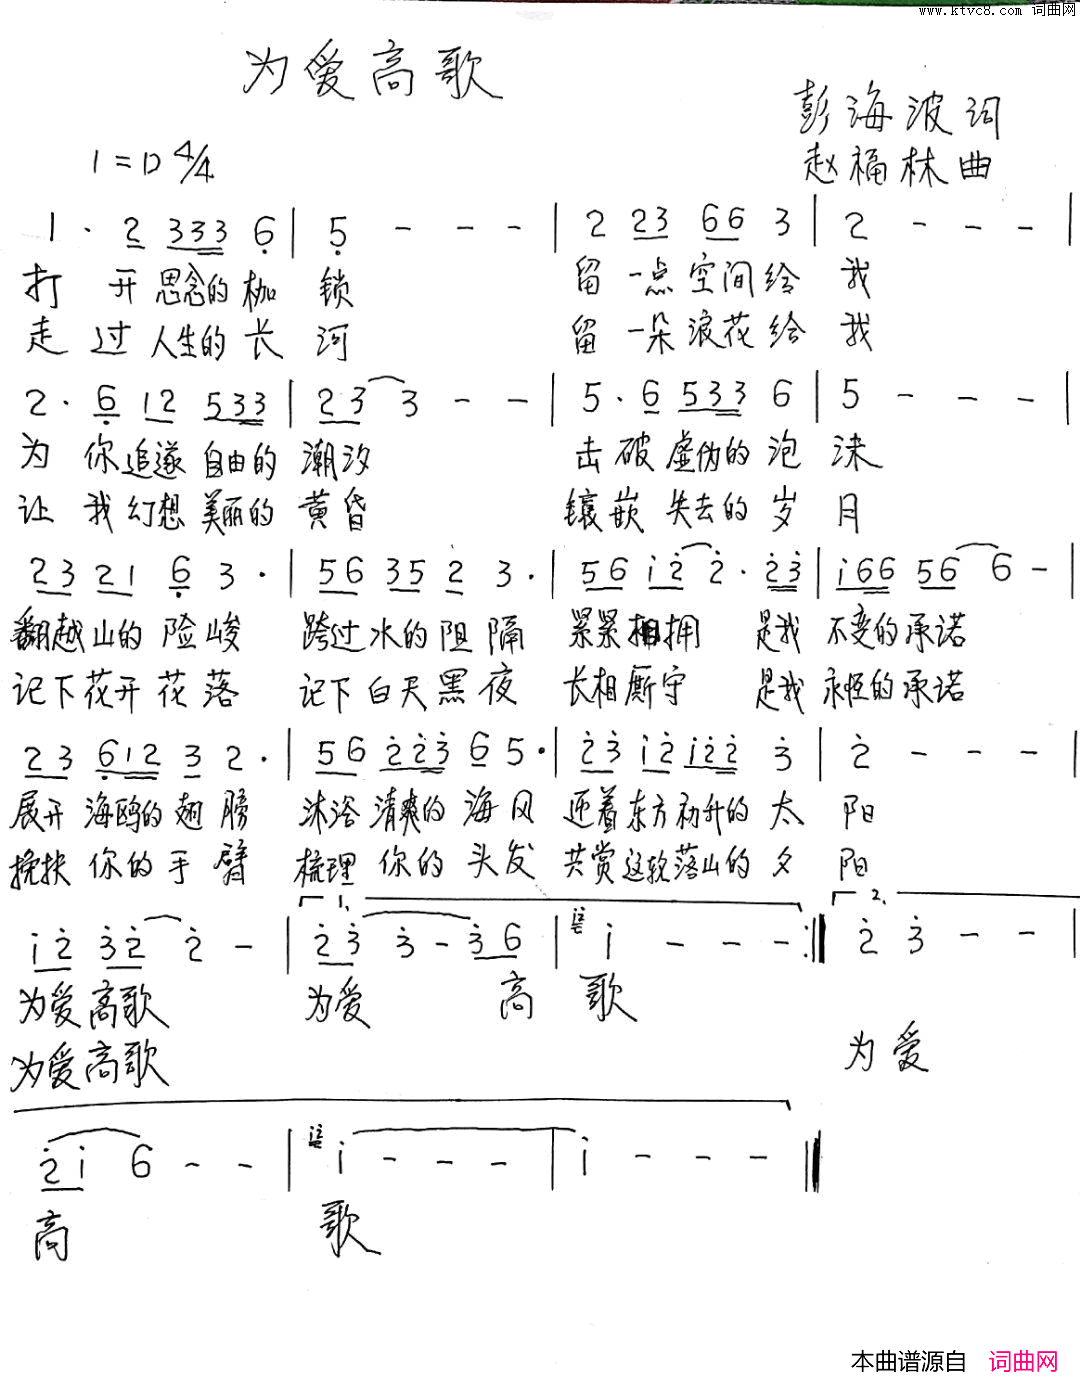 www.ktvc8.com 词曲网
为爱高歌
彭海波词
1=D 4/4
赵福林曲
1 · 2 333 6 | 5 - - - | 2 23 66 3 | 2 - - - |
打 开 思念的 枷 锁 留 一点 空间 给 我
走 过 人生的 长 河 留 一朵 浪花 给 我
2 · 6 12 533 | 23 3 - - | 5 · 6 533 6 | 5 - - - |
为 你 追逐 自由的 潮汐 击 破 虚伪的 泡 沫
让 我 幻想 美丽的 黄昏 镶 嵌 失去的 岁 月
23 21 6 3 · | 56 35 2 3 · | 56 i2 2 · 23 | i66 56 6 - |
翻越 山的 险 峻 跨过 水的 阻 隔 紧紧 相拥 是我 不变的 承诺
记下 花开 花 落 记下 白天 黑 夜 长相 厮守 是我 永恒的 承诺
23 612 3 2 · | 56 223 6 5 · | 23 i2 i22 3 | 2 - - - |
展开 海鸥的 翅 膀 沐浴 清爽的 海 风 迎着 东方 初升的 太 阳
挽扶 你的 手 臂 梳理 你的 头 发 共赏 这轮 落山的 夕 阳
1. 2.
i2 32 2 - | 23 3 - 36 | i22 i - - - :| 2 3 - - |
为爱 高歌 为爱 高 歌
为爱 高歌 为 爱
2i 6 - - | i22 i - - - | i - - - ||
高 歌
本曲谱源自 词曲网